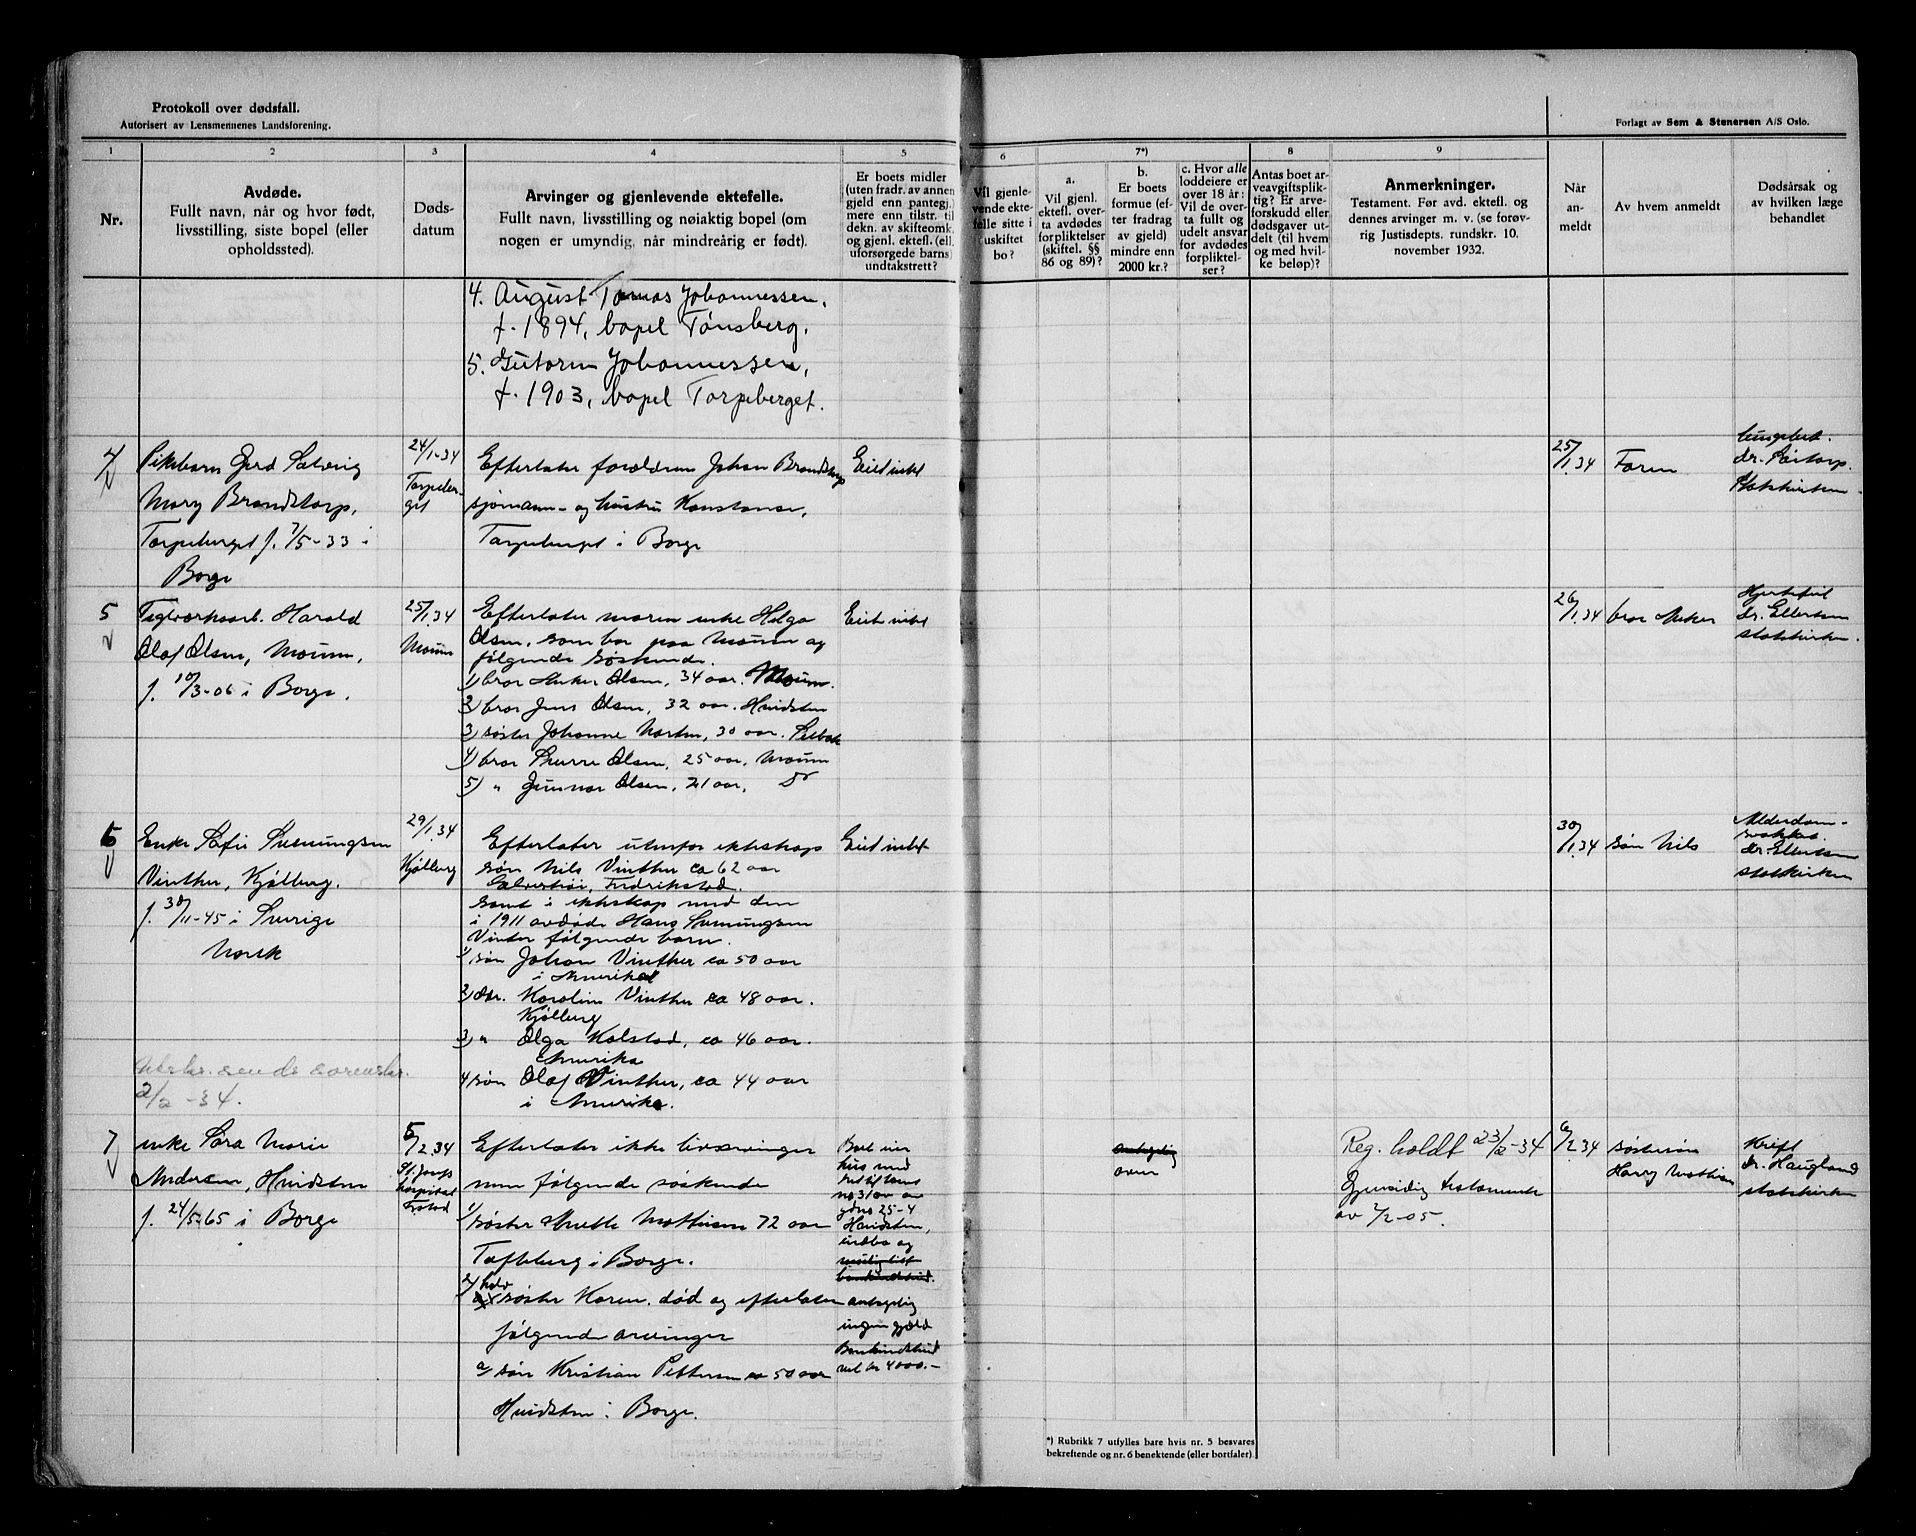 Protokoll over dødsfall.
Autorisert av Lensmennenes Landsforening.
Forlagt av Sem & Stenersen A/S Oslo.
1
2
3
4
5
6
7*)
8
9
Nr.
Avdøde.
Fullt navn, når og hvor født,
livsstilling, siste bopel (eller
opholdssted).
Døds-
datum
Arvinger og gjenlevende ektefelle.
Fullt navn, livsstilling og nøiaktig bopel (om
nogen er umyndig, når mindreårig er født).
Er boets midler
(uten fradr. av annen
gjeld enn pantegj.)
mere enn tilstr. til
dekn. av skifteomk.
og gjenl. ektefl. (ell.
uforsørgede barns)
undtakstrett?
Vil gjenle-
vende ekte-
felle sitte i
uskiftet
bo?
a.
Vil gjenl.
ektefl. over-
ta avdødes
forpliktelser
(skiftel. §§
86 og 89)?
b.
Er boets
formue (ef-
ter fradrag
av gjeld)
mindre enn
2000 kr.?
c. Hvor alle
loddeiere er
over 18 år:
Vil de over-
ta fullt og
udelt ansvar
for avdødes
forpliktel-
ser?
Antas boet ar-
veavgiftsplik-
tig? Er arve-
forskudd eller
dødsgaver ut-
delt (til hvem
og med hvil-
ke beløp)?
Anmerkninger.
Testament. Før avd. ektefl. og
dennes arvinger m. v. (se forøv-
rig Justisdepts. rundskr. 10.
november 1932.
Når
an-
meldt
Av hvem anmeldt
Dødsårsak og
av hvilken læge
behandlet
4. August Tomas Johannessen,
f. 1894, bopel Tønsberg.
5. Gutorm Johannessen,
f. 1903, bopel Torpeberget.
4
Pikebarn Gerd Solveig
Mary Brandstorp,
Torpeberget f. 7/5-33 i
Borge
24/1-34
Torpeber-
get
Efterlater forældrene Johan Brandstorp
sjømann og hustru Konstanse,
Torpeberget i Borge
Eiet intet
25/1.34
Faren
dr. Sørtorp.
Statskirken
5
Teglverksarb. Harald
Olaf Olsen, Moum,
f. 10/3-06 i Borge.
25/1.34
Moum
Efterlater moren enke Helga
Olsen, som bor paa Moum og
følgende søskende.
1) bror Anker Olsen, 34 aar. Moum.
2) bror Jens Olsen, 32 aar. Hvidsten
3) søster Johanne Morten, 30 aar. Selbak
4) bror Sverre Olsen, 25 aar, Moum
5) " Gunnar Olsen, 21 aar, Do
Eiet intet
26/1.34
bror Anker
Hjertefeil
dr. Ellertsen
statskirken.
6
Enke Sofie Svenningsen
Vinther, Kjølberg.
f. 30/11-45 i Sverige
Norsk
29/1.34
Kjølberg
Efterlater utenfor ekteskap
søn Nils Vinther ca 62 aar
Fredrikstad.
samt i ekteskap med den
i 1911 avdøde Hans Svenningsen
Vinter følgende barn.
1) søn Johan Vinther ca 50 aar
i Amerika
2) dtr. Karoline Vinther ca 48 aar.
Kjølberg
3) " Olga Kolstad, ca 46 aar.
Amerika
4 søn Olaf Vinther, ca 44 aar
i Amerika.
Eiet intet
30/1.34
søn Nils
Alderdom-
svakhet
dr. Ellertsen
statskirken
sende sorenskr.
2/2-34.
7
enke Sara Marie
Andersen, Hvidsten
f. 24/5-65 i Borge
5/2.34
St. Josefs
hospital
Frstad
Efterlater ikke livsarvinger
men følgende søskende
1) søster Anette Mathisen 72 aar
Tofteberg i Borge.
2) halv søster Karen. død og efterlater
følgende arvinger
a) søn Kristian Pettersen ca 50 aar
Hvidsten i Borge.
Boet eier
hus med
no 31 av av
gdno 25-4
Hvidsten,
indbo og
antagelig
ingen gjæld
Bankindskud
vel kr 4000.-
antagelig
over
Reg. holdt 23/2-34
Gjensidig testamente
av 7/2-05.
6/2.34
søstersøn
Harry Mathisen
Kreft
dr. Haugland
statskirken
*) Rubrikk 7 utfylles bare hvis nr. 5 besvares
bekreftende og nr. 6 benektende (eller bortfaler).